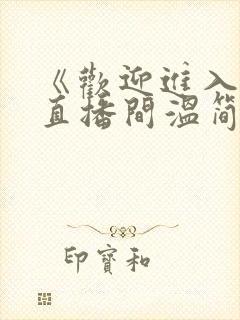 《歡迎進入
直播間溫简
印寶和